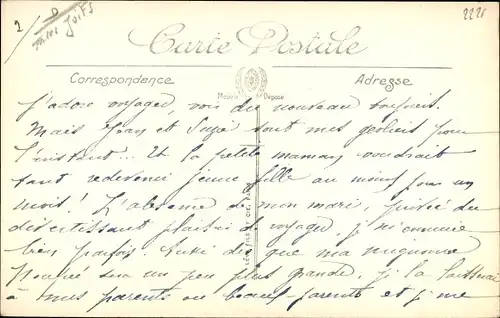 2
2221
Carte Postale
Correspondance
Adresse
Modèle Déposé
j'adore voyager, voir du nouveau toujours.
Mais Jean et Suzie sont mes geoliers pour
l'instant... Et la petite maman voudrait
tant redevenir jeune fille au moins pour un
mois! L'absence de mon mari, privée du
divertissant plaisir de voyager, je m'ennuie
bien parfois. dès que ma mignonne
sera un peu plus grande, je la laisserai
à mes parents ou beaux-parents et je me